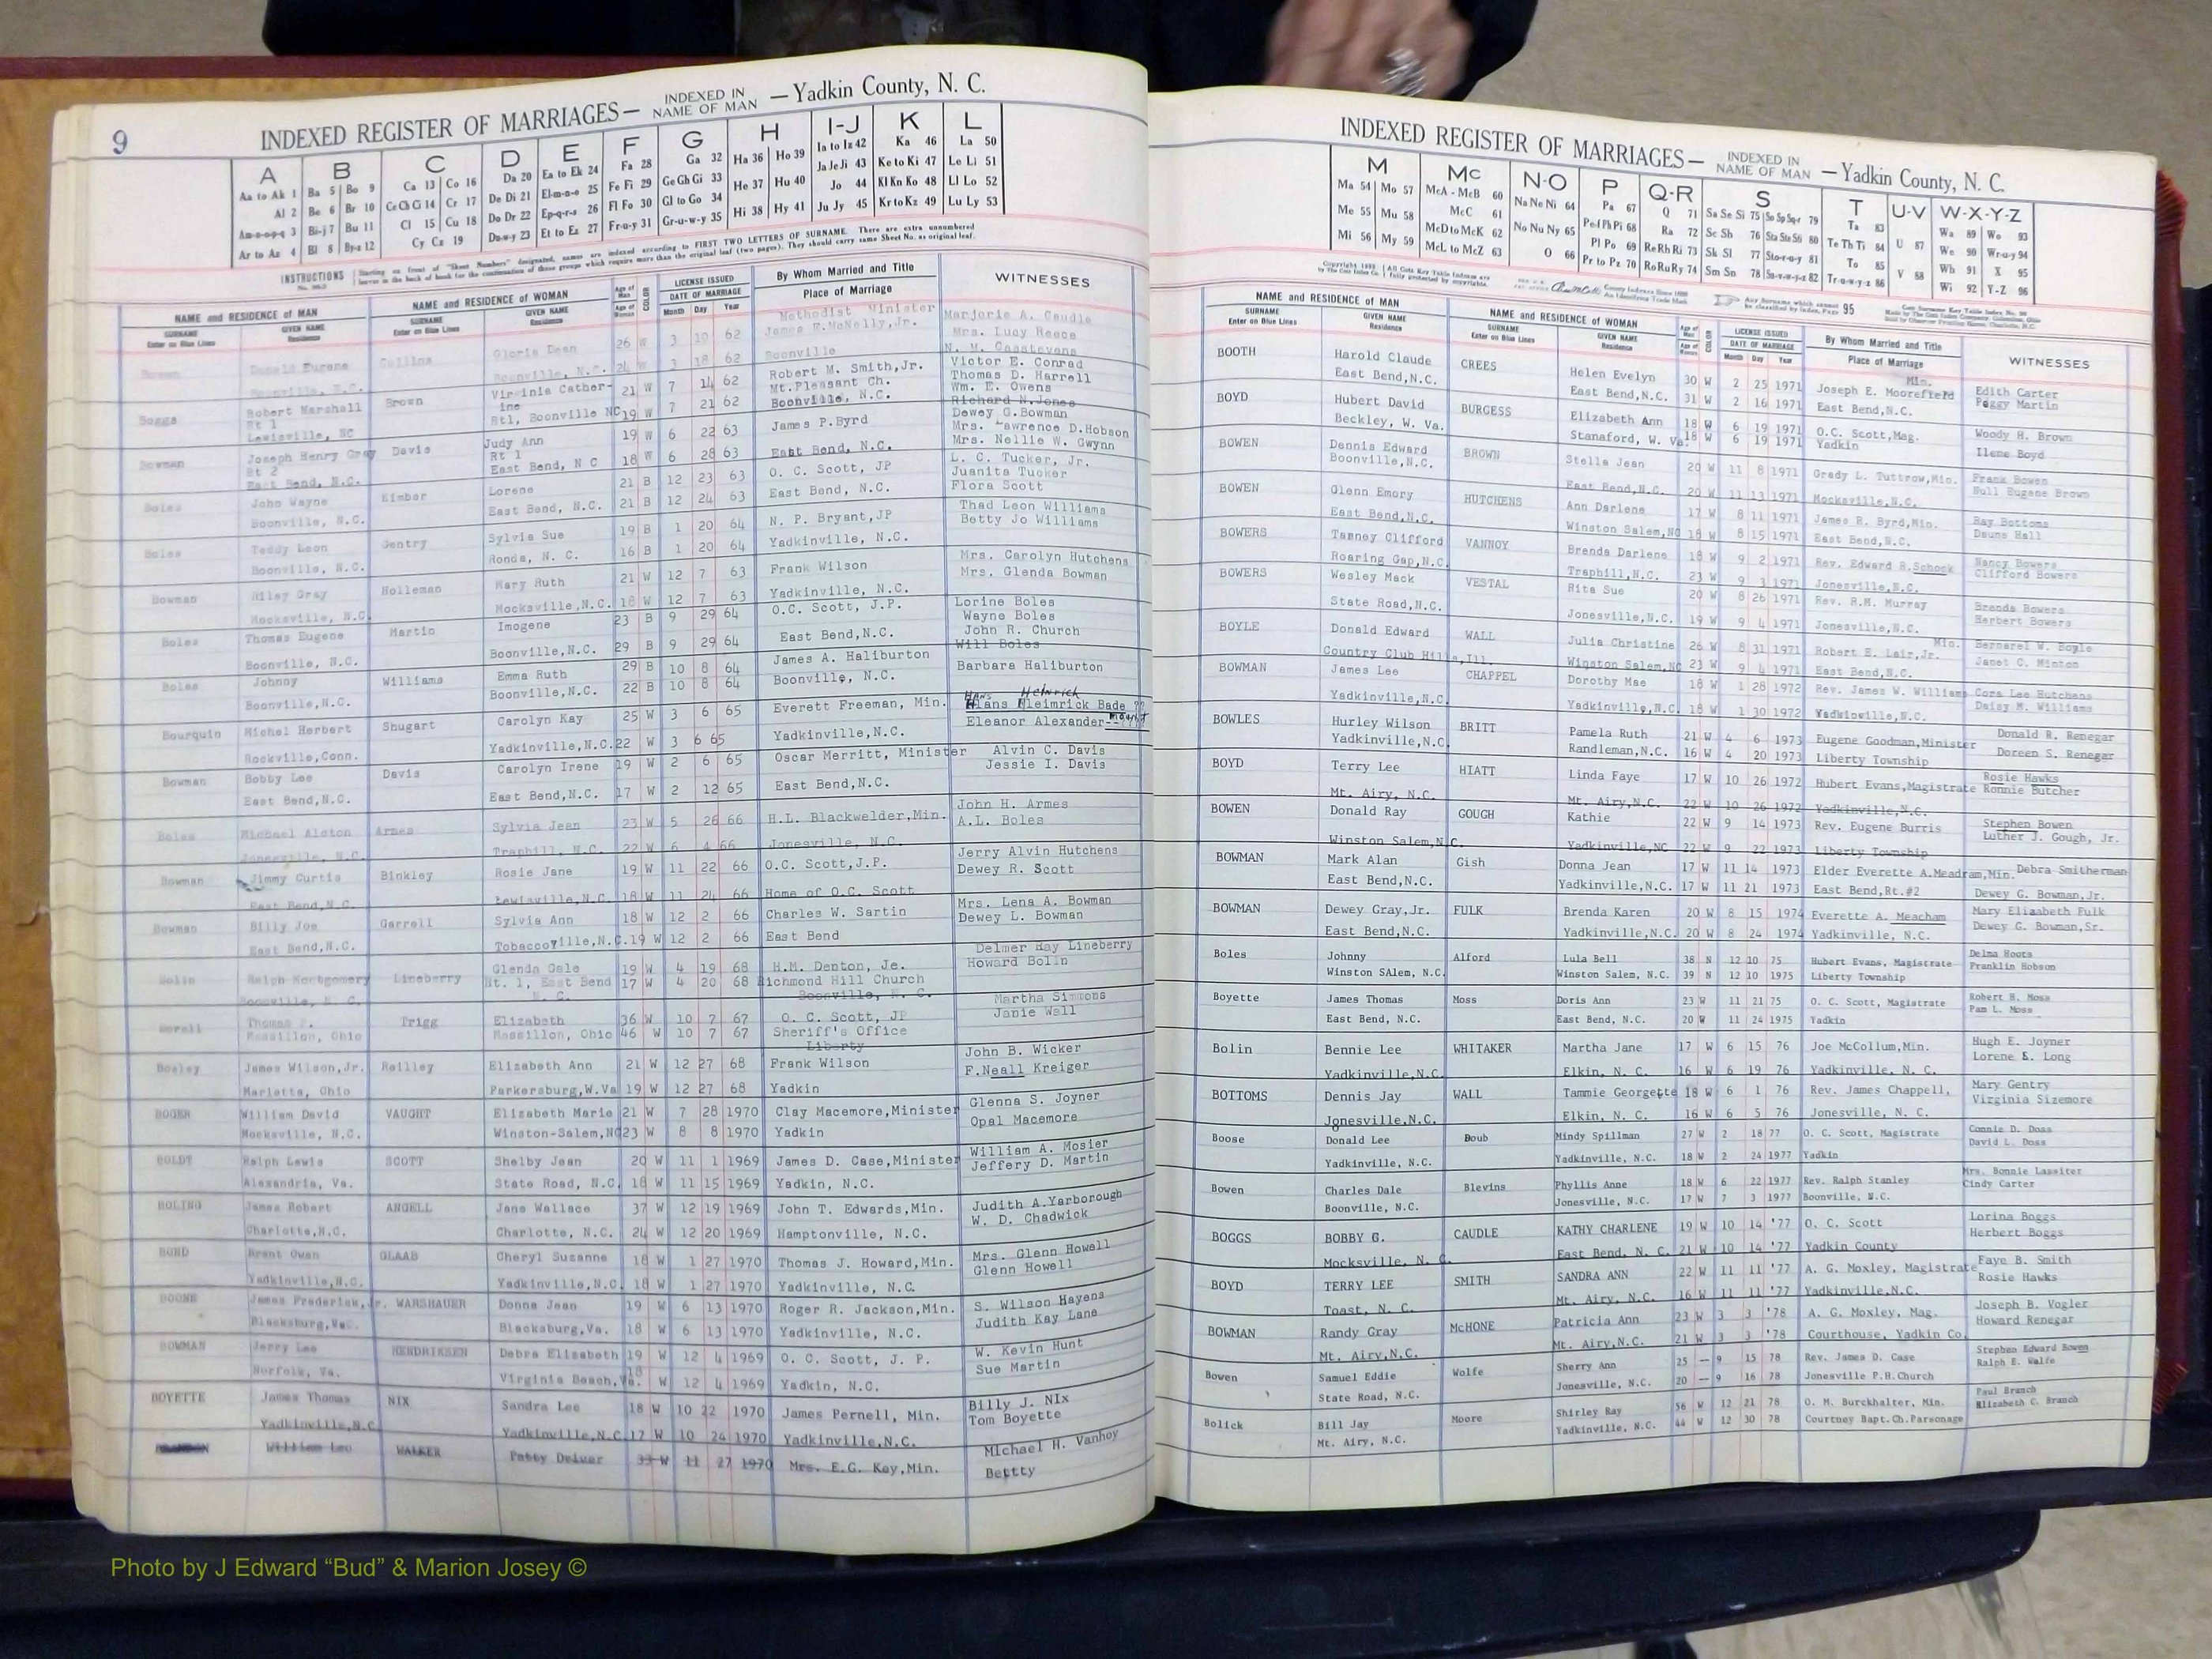 9
INDEXED REGISTER OF MARRIAGES— INDEXED IN NAME OF MAN —Yadkin County, N. C.
A B C D E F G H I-J K L
Aa to Ak 1 Ba 5 Bo 9 Ca 13 Co 16 Da 20 Ea to Ek 24 Fa 28 Ga 32 Ha 36 Ho 39 Ia to Iz 42 Ka 46 La 50
Al 2 Be 6 Br 10 Ce Ch Ci 14 Cr 17 De Di 21 El-m-n-o 25 Fe Fi 29 Ge Gh Gi 33 He 37 Hu 40 Ja Je Ji 43 Ke to Ki 47 Le Li 51
Am-n-o-p-q 3 Bi-j 7 Bu 11 Cl 15 Cu 18 Do Dr 22 Ep-q-r-s 26 Fl Fo 30 Gl to Go 34 Hi 38 Hy 41 Jo 44 Kl Kn Ko 48 Ll Lo 52
Ar to Az 4 Bl 8 By-z 12 Cy Cz 19 Du-w-y 23 Et to Ez 27 Fr-u-y 31 Gr-u-w-y 35 Ju Jy 45 Kr to Kz 49 Lu Ly 53
INSTRUCTIONS Starting on front of "Sheet Numbers" designated, names are indexed according to FIRST TWO LETTERS OF SURNAME. There are extra unnumbered
leaves in the back of book for the continuation of those groups which require more than the original leaf (two pages). They should carry same Sheet No. as original leaf.
NAME and RESIDENCE OF MAN NAME and RESIDENCE OF WOMAN Age of Man Age of Woman COLOR LICENSE ISSUED DATE OF MARRIAGE By Whom Married and Title Place of Marriage WITNESSES
SURNAME Enter on Blue Lines GIVEN NAME Residence SURNAME Enter on Blue Lines GIVEN NAME Residence Month Day Year
Methodist Minister Marjorie A. Caudle
Bowen Donald Eugene Collins Gloria Dean 26 W 3 10 62 James W.McNelly,Jr. Mrs. Lucy Reece
Boonville, N.C. Boonville, N.C. 24 W 3 18 62 Boonville
Boggs Robert Marshall Brown Virginia Cather- 21 W 7 14 62 Robert M. Smith,Jr. Victor E. Conrad
Rt 1 ine Mt.Pleasant Ch. Thomas D. Harrell
Lewisville, NC Rt1, Boonville NC 19 W 7 21 62 Boonville, N.C. Wm. E. Owens
Richard N.Jones
Bowman Joseph Henry Gray Davis Judy Ann 19 W 6 22 63 James P.Byrd Dewey G.Bowman
Rt 2 Rt 1 Mrs. Lawrence D.Hobson
East Bend, N.C. East Bend, N C 18 W 6 28 63 East Bend, N.C. Mrs. Nellie W. Gwynn
Boles John Wayne Kimber Lorene 21 B 12 23 63 O. C. Scott, JP L. C. Tucker, Jr.
Juanita Tucker
Boonville, N.C. East Bend, N.C. 21 B 12 24 63 East Bend, N.C. Flora Scott
Boles Teddy Leon Gentry Sylvia Sue 19 B 1 20 64 N. P. Bryant,JP Thad Leon Williams
Boonville, N.C. Ronda, N. C. 16 B 1 20 64 Yadkinville, N.C. Betty Jo Williams
Bowman Riley Gray Holleman Mary Ruth 21 W 12 7 63 Frank Wilson Mrs. Carolyn Hutchens
Mocksville, N.C. Mocksville,N.C. 18 W 12 7 63 Yadkinville, N.C. Mrs. Glenda Bowman
Boles Thomas Eugene Martin Imogene 23 B 9 29 64 O.C. Scott, J.P. Lorine Boles
Wayne Boles
Boonville, N.C. Boonville,N.C. 29 B 9 29 64 East Bend,N.C. John R. Church
Will Boles
Boles Johnny Williams Emma Ruth 29 B 10 8 64 James A. Haliburton Barbara Haliburton
Boonville,N.C. Boonville,N.C. 22 B 10 8 64 Boonville, N.C.
HANS Heinrich
Bourquin Michel Herbert Shugart Carolyn Kay 25 W 3 6 65 Everett Freeman, Min. Hans Heimrick Bade
Rockville,Conn. Yadkinville,N.C. 22 W 3 6 65 Yadkinville, N.C. Eleanor Alexander
Bowman Bobby Lee Davis Carolyn Irene 19 W 2 6 65 Oscar Merritt, Minister Alvin C. Davis
East Bend,N.C. East Bend,N.C. 17 W 2 12 65 East Bend,N.C. Jessie I. Davis
Boles Michael Alston Armes Sylvia Jean 23 W 5 26 66 H.L. Blackwelder,Min. John H. Armes
Jonesville, N.C. Traphill, N.C. 22 W 6 4 66 Jonesville, N.C. A.L. Boles
Bowman Jimmy Curtis Binkley Rosie Jane 19 W 11 22 66 O.C. Scott,J.P. Jerry Alvin Hutchens
East Bend,N.C. Lewisville,N.C. 18 W 11 24 66 Home of O.C. Scott Dewey R. Scott
Bowman Billy Joe Garrell Sylvia Ann 18 W 12 2 66 Charles W. Sartin Mrs. Lena A. Bowman
East Bend,N.C. Tobaccoville,N.C. 19 W 12 2 66 East Bend Dewey L. Bowman
Bolin Ralph Montgomery Lineberry Glenda Gale 19 W 4 19 68 H.M. Denton, Je. Delmer Ray Lineberry
Boonville, N. C. Rt. 1, East Bend 17 W 4 20 68 Richmond Hill Church Howard Bolin
N. C. Boonville, N. C.
Borell Thomas P. Trigg Elizabeth 36 W 10 7 67 O. C. Scott, JP Martha Simmons
Massillon, Ohio Massillon, Ohio 46 W 10 7 67 Sheriff's Office Janie Wall
Liberty
Bosley James Wilson,Jr. Reilley Elizabeth Ann 21 W 12 27 68 Frank Wilson John B. Wicker
Marietta, Ohio Parkersburg,W.Va 19 W 12 27 68 Yadkin F.Neall Kreiger
BOGER William David VAUGHT Elizabeth Marie 21 W 7 28 1970 Clay Macemore,Minister Glenna S. Joyner
Mocksville, N.C. Winston-Salem,NC 23 W 8 8 1970 Yadkin Opal Macemore
BOLDT Ralph Lewis SCOTT Shelby Jean 20 W 11 1 1969 James D. Case,Minister William A. Mosier
Alexandria, Va. State Road, N.C. 18 W 11 15 1969 Yadkin, N.C. Jeffery D. Martin
BOLING James Robert ANGELL Jane Wallace 37 W 12 19 1969 John T. Edwards,Min. Judith A.Yarborough
Charlotte,N.C. Charlotte, N.C. 24 W 12 20 1969 Hamptonville, N.C. W. D. Chadwick
BOND Brent Owan GLAAB Cheryl Suzanne 18 W 1 27 1970 Thomas J. Howard,Min. Mrs. Glenn Howell
Yadkinville,N.C. Yadkinville,N.C. 18 W 1 27 1970 Yadkinville, N.C. Glenn Howell
BOONE James Frederick,Jr. WARSHAUER Donna Jean 19 W 6 13 1970 Roger R. Jackson,Min. S. Wilson Hayens
Blacksburg,Va. Blacksburg,Va. 18 W 6 13 1970 Yadkinville, N.C. Judith Kay Lane
BOWMAN Jerry Lee HENDRIKSEN Debra Elizabeth 19 W 12 4 1969 O. C. Scott, J. P. W. Kevin Hunt
Norfolk, Va. Virginia Beach,Va. 18 W 12 4 1969 Yadkin, N.C. Sue Martin
BOYETTE James Thomas NIX Sandra Lee 18 W 10 22 1970 James Pernell, Min. Billy J. NIx
Yadkinville,N.C. Yadkinville,N.C 17 W 10 24 1970 Yadkinville,N.C. Tom Boyette
William Leo WALKER Patty Deiver 33 W 11 27 1970 Mrs. E.G. Key,Min. MIchael H. Vanhoy
Bettty
INDEXED REGISTER OF MARRIAGES— INDEXED IN NAME OF MAN —Yadkin County, N. C.
M Mc N-O P Q-R S T U-V W-X-Y-Z
Ma 54 Mo 57 McA - McB 60 Na Ne Ni 64 Pa 67 Q 71 Sa Se Si 75 So Sp Sq-r 79 Ta 83 U 87 Wa 89 Wo 93
Me 55 Mu 58 McC 61 No Nu Ny 65 Pe Pf Ph Pi 68 Ra 72 Sc Sh 76 Sta Ste Sti 80 Te Th Ti 84 V 88 We 90 Wr-u-y 94
Mi 56 My 59 McD to McK 62 O 66 Pl Po 69 Re Rh Ri 73 Sk Sl 77 Sto-r-u-y 81 To 85 Wh 91 X 95
McL to McZ 63 Pr to Pz 70 Ro Ru Ry 74 Sm Sn 78 Su-v-w-y-z 82 Tr-u-w-y-z 86 Wi 92 Y-Z 96
Any Surname which cannot be classified by index, Page 95
NAME and RESIDENCE OF MAN NAME and RESIDENCE OF WOMAN Age of Man Age of Woman COLOR LICENSE ISSUED DATE OF MARRIAGE By Whom Married and Title Place of Marriage WITNESSES
SURNAME Enter on Blue Lines GIVEN NAME Residence SURNAME Enter on Blue Lines GIVEN NAME Residence Month Day Year
BOOTH Harold Claude CREES Helen Evelyn 30 W 2 25 1971 Joseph E. Moorefield Min. Edith Carter
East Bend,N.C. East Bend,N.C. 31 W 2 16 1971 East Bend,N.C. Peggy Martin
BOYD Hubert David BURGESS Elizabeth Ann 18 W 6 19 1971 O.C. Scott,Mag. Woody H. Brown
Beckley, W. Va. Stanaford, W. Va. 18 W 6 19 1971 Yadkin Ilene Boyd
BOWEN Dennis Edward BROWN Stella Jean 20 W 11 8 1971 Grady L. Tuttrow,Min. Frank Bowen
Boonville,N.C. East Bend,N.C. 20 W 11 13 1971 Mocksville,N.C. Null Eugene Brown
BOWEN Glenn Emory HUTCHENS Ann Darlene 17 W 8 11 1971 James R. Byrd,Min. Ray Bottoms
East Bend,N.C. Winston Salem,NC 18 W 8 15 1971 East Bend,N.C. Deune Hall
BOWERS Tamney Clifford VANNOY Brenda Darlene 18 W 9 2 1971 Rev. Edward R.Schock Nancy Bowers
Roaring Gap,N.C. Traphill,N.C. 23 W 9 3 1971 Jonesville,N.C. Clifford Bowers
BOWERS Wesley Mack VESTAL Rita Sue 20 W 8 26 1971 Rev. R.M. Murray Brenda Bowers
State Road,N.C. Jonesville,N.C. 19 W 9 4 1971 Jonesville,N.C. Herbert Bowers
BOYLE Donald Edward WALL Julia Christine 26 W 8 31 1971 Robert E. Lair,Jr. Min. Bernarel W. Boyle
Country Club Hills,Ill. Winston Salem,NC 23 W 9 4 1971 East Bend,N.C. Janet C. Minton
BOWMAN James Lee CHAPPEL Dorothy Mae 18 W 1 28 1972 Rev. James W. Williams Cora Lee Hutchens
Yadkinville,N.C. Yadkinville,N.C. 18 W 1 30 1972 Yadkinville,N.C. Daisy M. Williams
BOWLES Hurley Wilson BRITT Pamela Ruth 21 W 4 6 1973 Eugene Goodman,Minister Donald R. Renegar
Yadkinville,N.C. Randleman,N.C. 16 W 4 20 1973 Liberty Township Doreen S. Renegar
BOYD Terry Lee HIATT Linda Faye 17 W 10 26 1972 Hubert Evans,Magistrate Rosie Hawks
Mt. Airy, N.C. Mt. Airy,N.C. 22 W 10 26 1972 Yadkinville,N.C. Ronnie Butcher
BOWEN Donald Ray GOUGH Kathie 22 W 9 14 1973 Rev. Eugene Burris Stephen Bowen
Winston Salem,N.C. Yadkinville,NC 22 W 9 22 1973 Liberty Township Luther J. Gough, Jr.
BOWMAN Mark Alan Gish Donna Jean 17 W 11 14 1973 Elder Everette A.Meadram,Min. Debra Smitherman
East Bend,N.C. Yadkinville,N.C. 17 W 11 21 1973 East Bend,Rt.#2 Dewey G. Bowman,Jr.
BOWMAN Dewey Gray,Jr. FULK Brenda Karen 20 W 8 15 1974 Everette A. Meacham Mary Elizabeth Fulk
East Bend,N.C. Yadkinville,N.C. 20 W 8 24 1974 Yadkinville, N.C. Dewey G. Bowman,Sr.
Boles Johnny Alford Lula Bell 38 N 12 10 75 Hubert Evans, Magistrate Delma Hoots
Winston SAlem, N.C. Winston Salem, N.C. 39 N 12 10 1975 Liberty Township Franklin Hobson
Boyette James Thomas Moss Doris Ann 23 W 11 21 75 O. C. Scott, Magistrate Robert H. Moss
East Bend, N.C. East Bend, N.C. 20 W 11 24 1975 Yadkin Pam L. Moss
Bolin Bennie Lee WHITAKER Martha Jane 17 W 6 15 76 Joe McCollum,Min. Hugh E. Joyner
Yadkinville,N.C. Elkin, N. C. 16 W 6 19 76 Yadkinville, N. C. Lorene E. Long
BOTTOMS Dennis Jay WALL Tammie Georgette 18 W 6 1 76 Rev. James Chappell, Mary Gentry
Jonesville,N.C. Elkin, N. C. 16 W 6 5 76 Jonesville, N. C. Virginia Sizemore
Boose Donald Lee Doub Mindy Spillman 27 W 2 18 77 O. C. Scott, Magistrate Connie D. Doss
Yadkinville, N.C. Yadkinville, N.C. 18 W 2 24 1977 Yadkin David L. Doss
Bowen Charles Dale Blevins Phyllis Anne 18 W 6 22 1977 Rev. Ralph Stanley Mrs. Bonnie Lassiter
Boonville, N.C. Jonesville, N.C. 17 W 7 3 1977 Boonville, N.C. Cindy Carter
BOGGS BOBBY G. CAUDLE KATHY CHARLENE 19 W 10 14 '77 O. C. Scott Lorina Boggs
Mocksville, N. C. East Bend, N. C. 21 W 10 14 '77 Yadkin County Herbert Boggs
BOYD TERRY LEE SMITH SANDRA ANN 22 W 11 11 '77 A. G. Moxley, Magistrate Faye B. Smith
Toast, N. C. Mt. Airy, N.C. 16 W 11 11 '77 Yadkinville,N.C. Rosie Hawks
BOWMAN Randy Gray McHONE Patricia Ann 23 W 3 3 '78 A. G. Moxley, Mag. Joseph B. Vogler
Mt. Airy,N.C. Mt. Airy,N.C. 21 W 3 3 '78 Courthouse, Yadkin Co. Howard Renegar
Bowen Samuel Eddie Wolfe Sherry Ann 25 — 9 15 78 Rev. James D. Case Stephen Edward Bowen
State Road, N.C. Jonesville, N.C. 20 — 9 16 78 Jonesville P.H.Church Ralph E. Walfe
Bolick Bill Jay Moore Shirley Ray 56 W 12 21 78 O. M. Burckhalter, Min. Paul Branch
Mt. Airy, N.C. Yadkinville, N.C. 44 W 12 30 78 Courtney Bapt.Ch.Parsonage Elizabeth C. Branch
Photo by J Edward “Bud” & Marion Josey ©